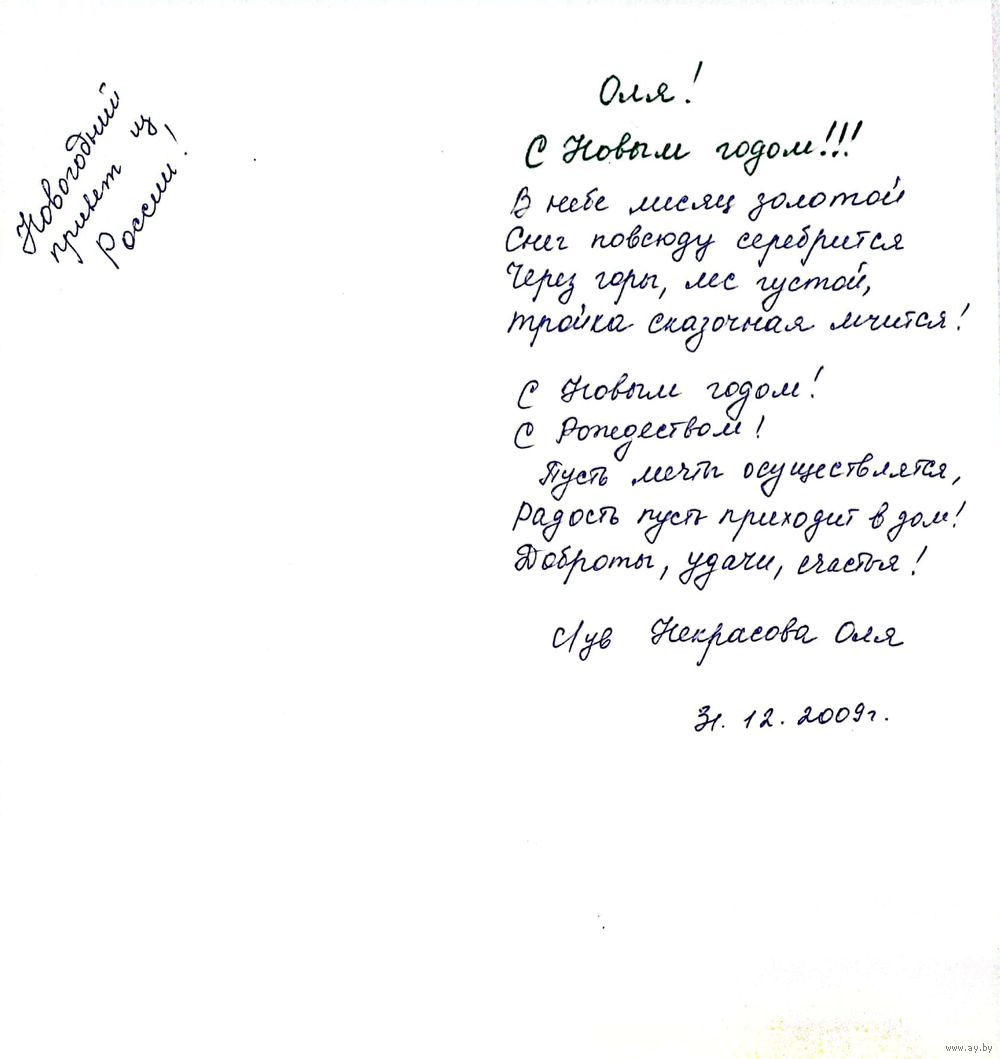 Новогодний
привет из
России!
Оля!
С Новым годом!!!
В небе месяц золотой
Снег повсюду серебрится
Через горы, лес густой,
тройка сказочная мчится!
С Новым годом!
С Рождеством!
Пусть мечты осуществлятся,
Радость пусть приходит в дом!
Доброты, удачи, счастья!
С/ув Некрасова Оля
31.12.2009г.
www.ay.by